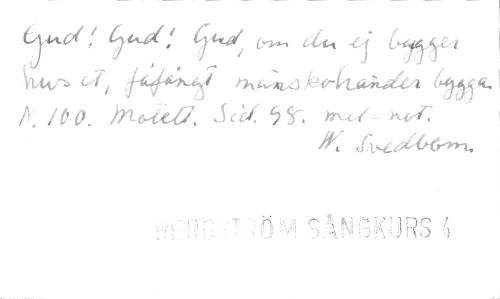 Gud! Gud! Gud, om du ej bygger
huset, fåfängt mänskohänder bygga.
N. 100. Motett. Sid. 98. mel-not.
W. Svedbom.
BERGSTRÖM SÅNGKURS 4